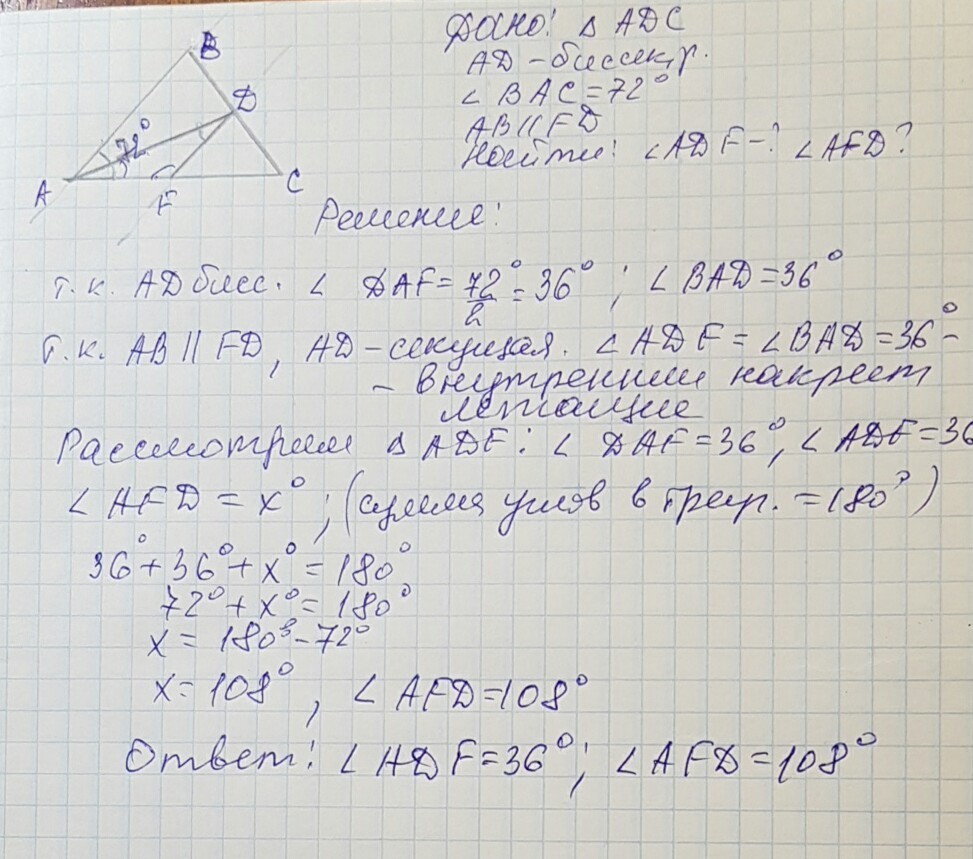 B
D
72°
A
F
C
Дано: △ ADC
AD - биссектр.
∠ BAC = 72°
AB || FD
Найти: ∠ADF-? ∠AFD?
Решение:
т.к. AD бисс. ∠ DAF = 72°/2 = 36° ; ∠ BAD = 36°
т.к. AB || FD, AD - секущая. ∠ ADF = ∠BAD = 36° -
- внутренние накрест
лежащие
Рассмотрим △ ADF : ∠ DAF = 36°, ∠ ADF = 36
∠ AFD = x° ; (сумма углов в треуг. = 180°)
36° + 36° + x° = 180°
72° + x° = 180°
x = 180° - 72°
x = 108° , ∠ AFD = 108°
Ответ: ∠ ADF = 36° ; ∠ AFD = 108°